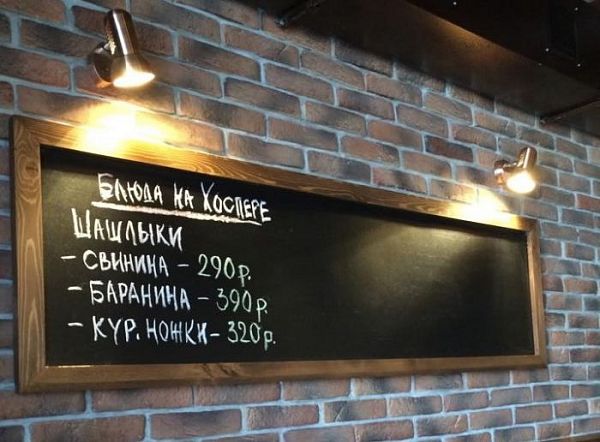 Блюда на Хоспере
Шашлыки
- свинина - 290р.
- баранина - 390р.
- кур. ножки - 320р.